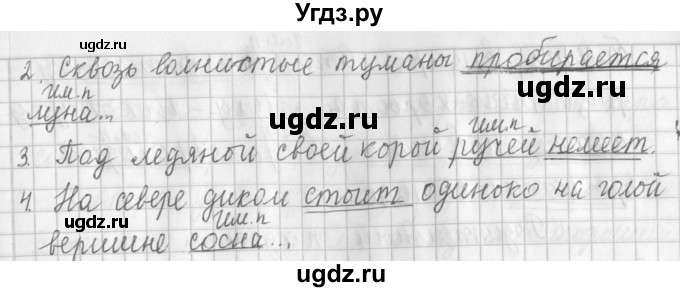 Угдз.ру
2. Сквозь волнистые туманы пробирается
им.п
луна...
им.п.
3. Под ледяной своей корой ручей немеет.
4. На севере диком стоит одиноко на голой
им.п
вершине сосна...
ugdz.ru
ugdz.ru
ugdz.ru
ugdz.ru
ugdz.ru
ugdz.ru
ugdz.ru
ugdz.ru